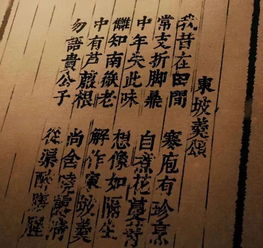 東坡羹頌
我昔在田間 寒庖有珍烹
常支折脚鼎 自煮花蔓菁
中年失此味 想像如隔生
誰知南嶽老 解作東坡羹
中有蘆菔根 尚含曉露清
勿語貴公子 從渠醉羶腥